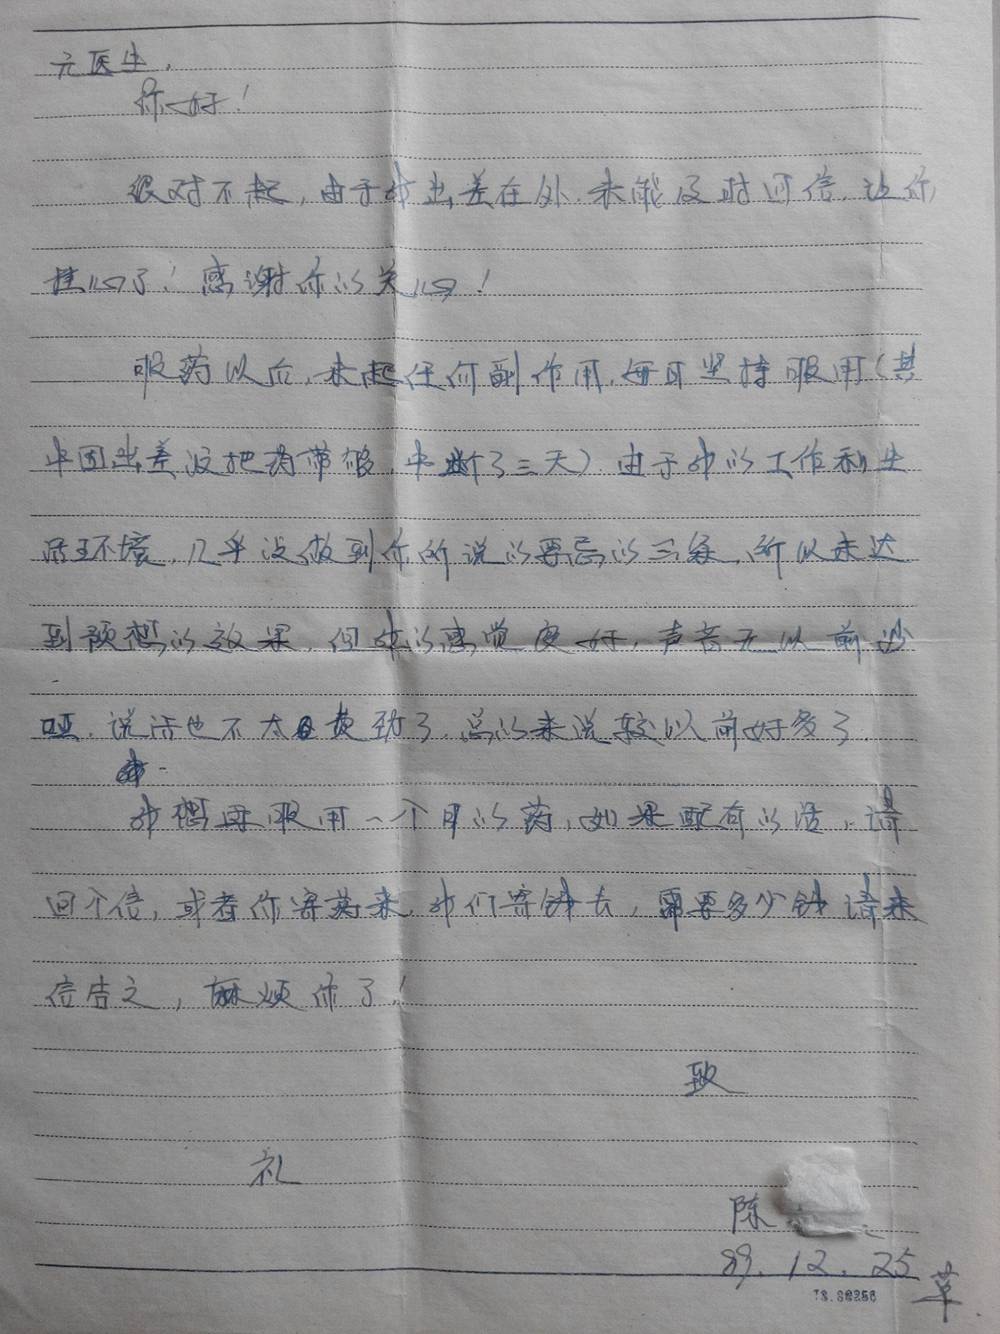 元医生,
你好!
很对不起,由于我出差在外.未能及时回信.让你
挂心了!感谢你的关心!
服药以后,未起任何副作用,每日坚持服用(其
中因出差没把药带够,中断了三天)由于我的工作和生
活环境,几乎没做到你所说的要忌的三条,所以未达
到预想的效果,但我的感觉良好,声音无以前沙
哑.说话也不太费劲了.总的来说较以前好多了.
我想再服用一个月的药,如果配有的话,请
回个信,或者你寄药来,我们寄钱去,需要多少钱请来
信告之,麻烦你了!
致
礼
陈
89.12.25
草